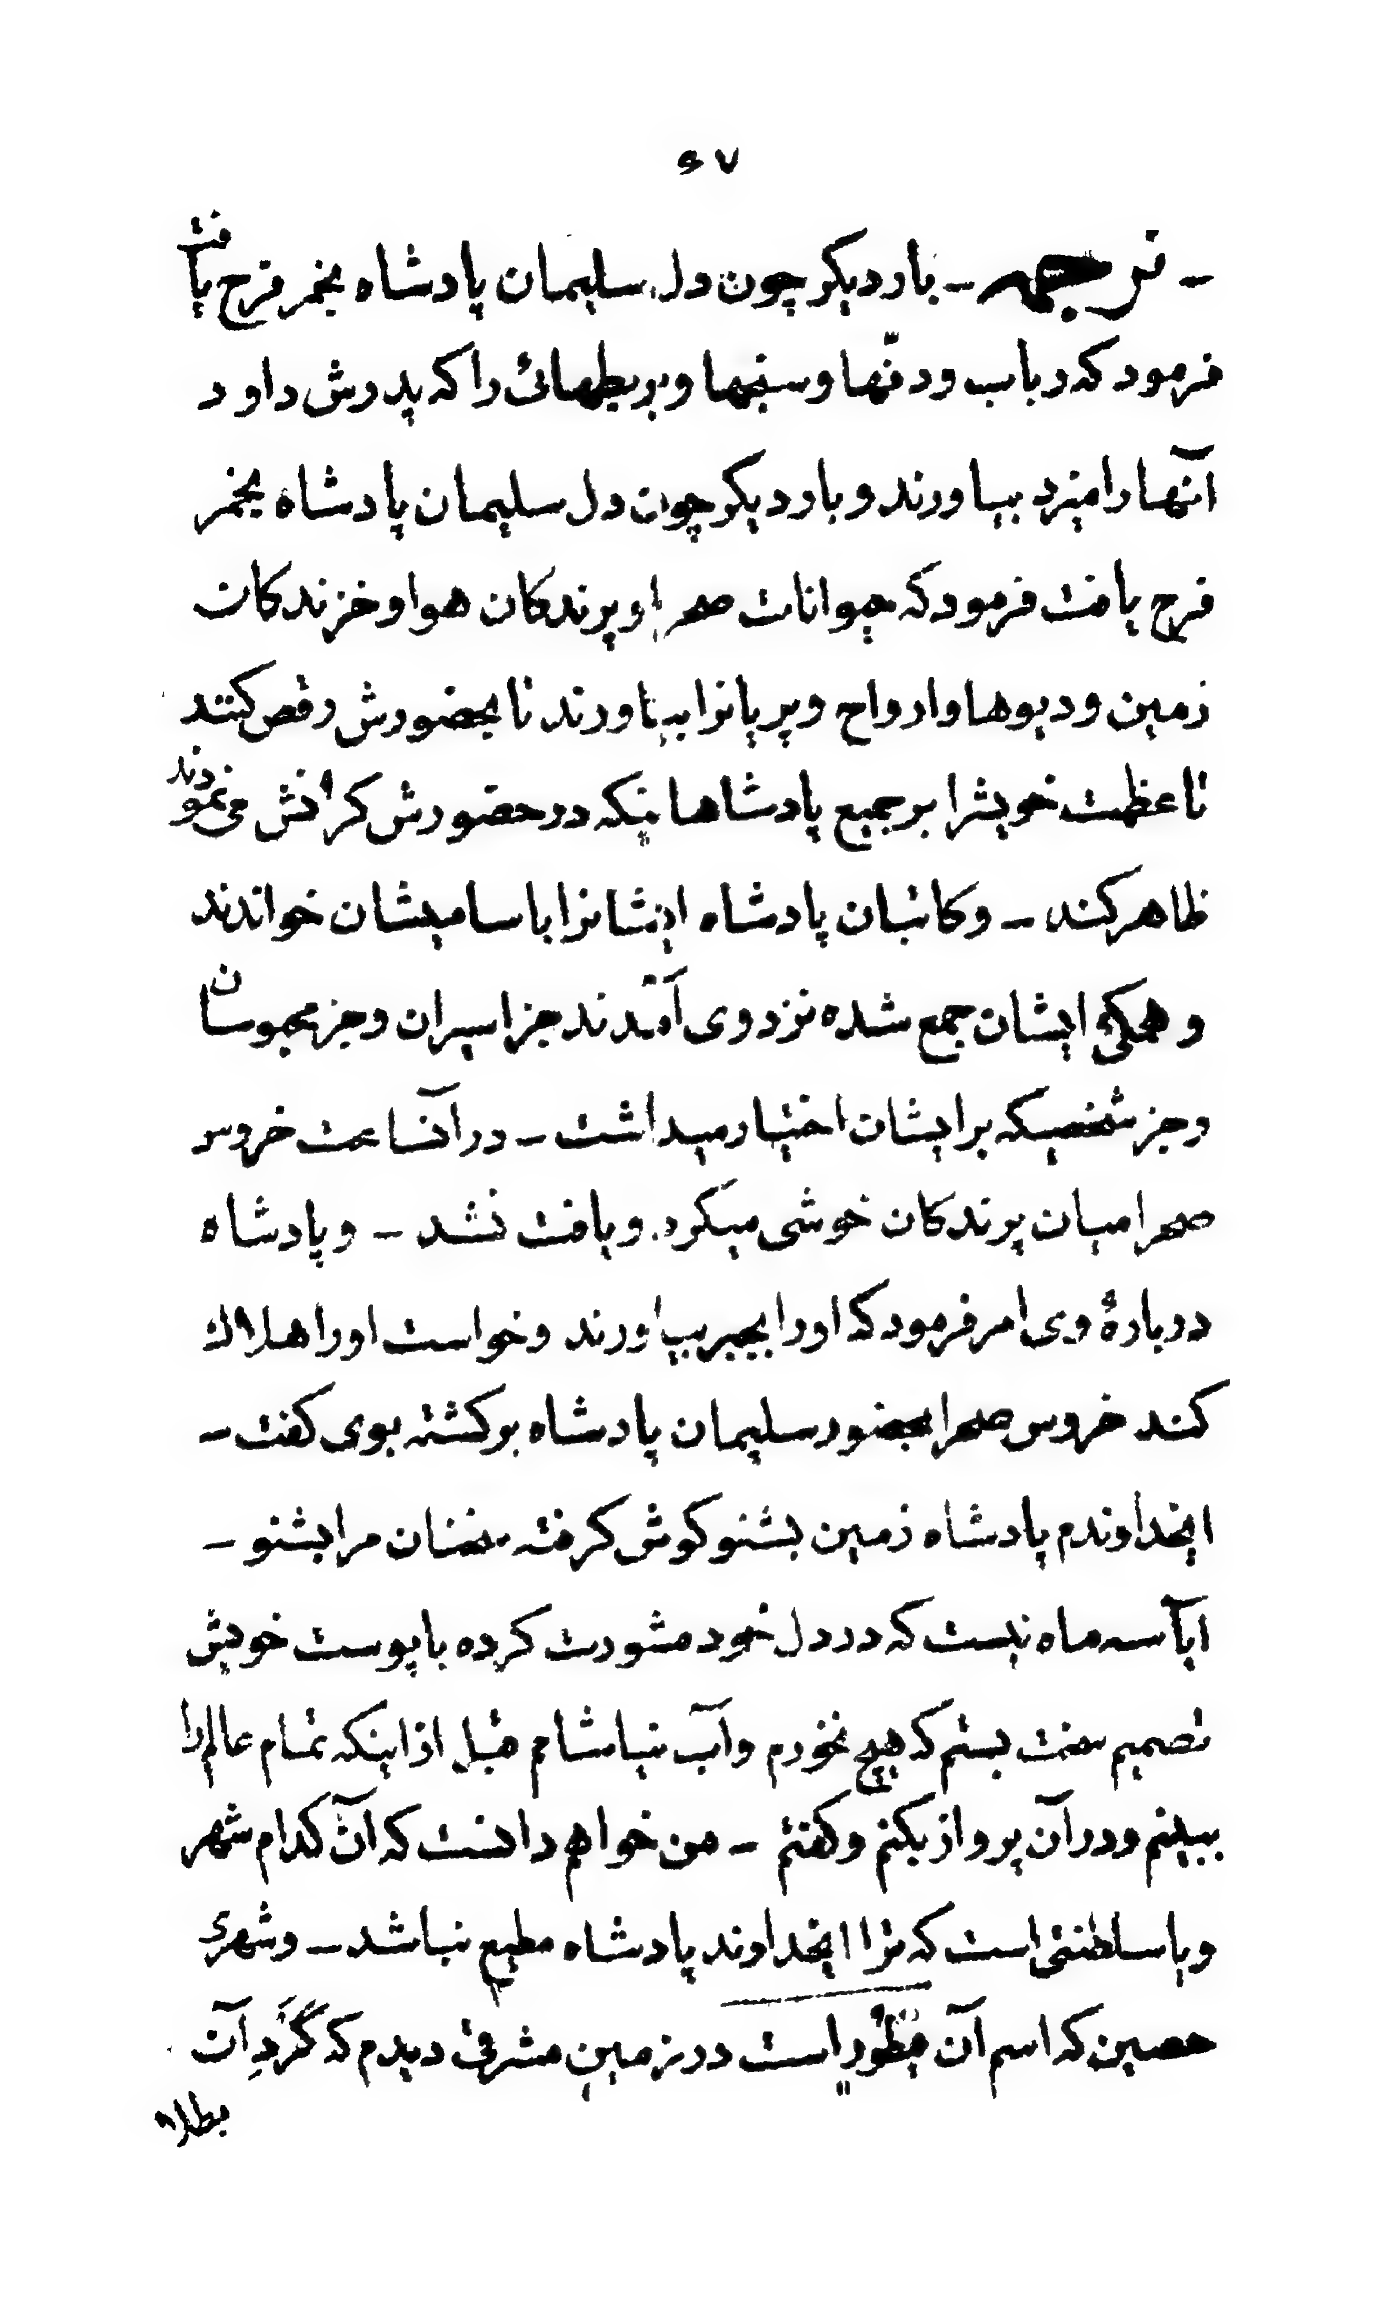 ۶۷
– ترجمه – بار دیکر چون دل سلیمان پادشاه بخمر فرح یافت
فرمود که رباب و دفّها و سنجها و بربطهائی را که پدرش داود
آنها را میزد بیاورند و بار دیکر چون دل سلیمان پادشاه بخمر
فرح یافت فرمود که حیوانات صحرا و پرندکان هوا و خزندکان
زمین و دیوها و ارواح و پریانرا بیاورند تا بحضورش رقص کنند
تا عظمت خویشرا بر جمیع پادشاهانیکه در حضورش کرانش می‌نمودند
ظاهر کند – و کاتبان پادشاه ایشانرا باسامیشان خواندند
و همکیٔ ایشان جمع شده نزد وی آمدند جز اسیران و جز محبوسان
و جز شخصیکه بر ایشان اختیار میداشت – در آنساعت خروس
صحرا میان پرندکان خوشی میکرد و یافت نشد – و پادشاه
دربارهٔ وی امر فرمود که او را بجبر بیاورند و خواست او را هلاک
کند خروس صحرا بحضور سلیمان پادشاه برکشته بوی کفت –
ایخداوندم پادشاه زمین بشنو کوش کرفته سخنان مرا بشنو –
ایآ سه ماه نیست که در دل خود مشورت کرده با پوست خویش
تصمیم سخت بستم که هیچ نخورم و آب نیاشامم قبل از اینکه تمام عالم را
ببینم و در آن پرواز بکنم و کفتم – من خواهم دانست که آن کدام شهر
و یا سلطنتی است که ترا ایخداوند پادشاه مطیع نباشد – و شهری
حصین که اسم آن قیطور است در زمین مشرقی دیدم که گَردِ آن
بطلاء